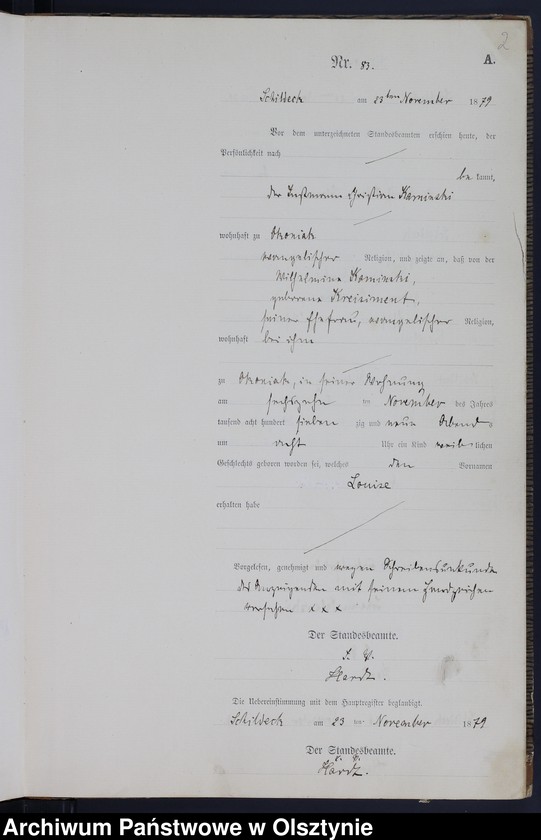 2
Nr. 83.
A.
Schildeck am 23ten November 1879
Vor dem unterzeichneten Standesbeamten erschien heute, der
Persönlichkeit nach
be kannt,
der Instmann Christian Kaminski
wohnhaft zu Okoniak
evangelischer Religion, und zeigte an, daß von der
Wilhelmine Kaminski,
geborene Kreisiment,
seiner Ehefrau, evangelischer Religion,
wohnhaft bei ihm
zu Okoniak, in seiner Wohnung
am sechszehn ten November des Jahres
tausend acht hundert sieben zig und neun Abends
um acht Uhr ein Kind weib lichen
Geschlechts geboren worden sei, welches den Vornamen
Louise
erhalten habe
Vorgelesen, genehmigt und wegen Schreibensunkunde
des Anzeigenden mit seinem Handzeichen
versehen x x x
Der Standesbeamte.
Hardt.
Die Uebereinstimmung mit dem Hauptregister beglaubigt.
Schildeck am 23 ten November 1879
Der Standesbeamte.
Hardt.
Archiwum Państwowe w Olsztynie